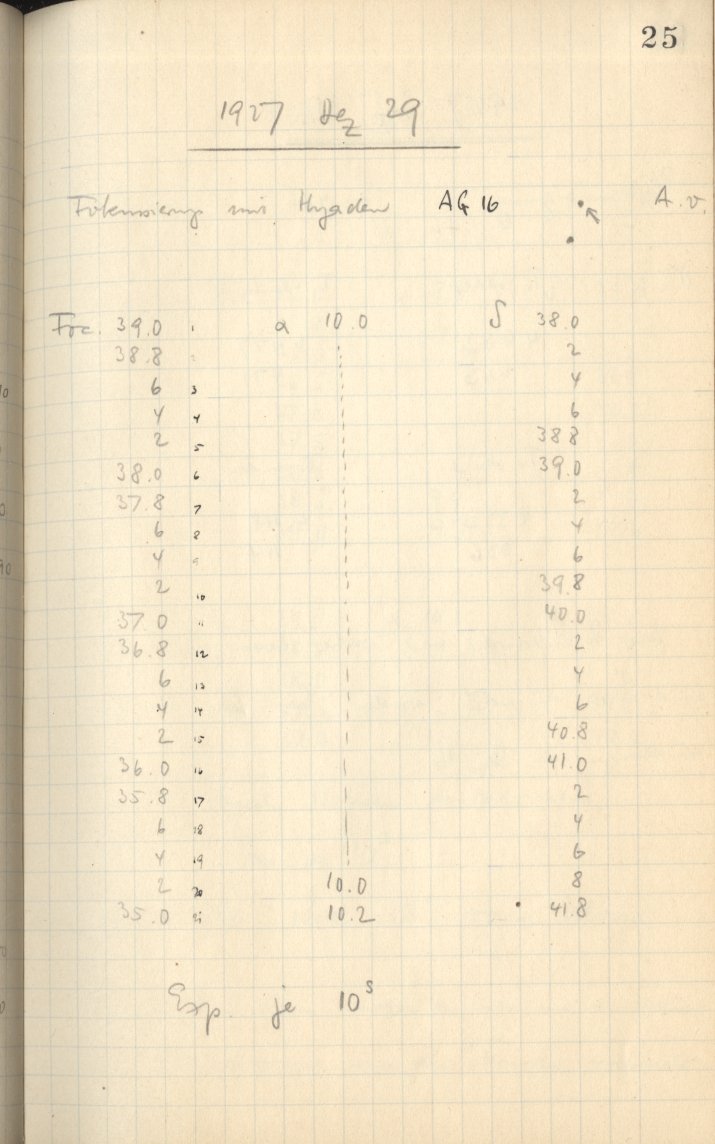 25
1927 Dez 29
Fokussierung mit Hyaden AG 16 A.v.
Foc. 39.0 1 α 10.0 δ 38.0
38.8 2 2
6 3 4
4 4 6
2 5 38 8
38.0 6 39.0
37.8 7 2
6 8 4
4 9 6
2 10 39.8
37 0 11 40.0
36.8 12 2
6 13 4
4 14 6
2 15 40.8
36.0 16 41.0
35.8 17 2
6 18 4
4 19 6
2 20 10.0 8
35.0 21 10.2 41.8
Exp. je 10 s